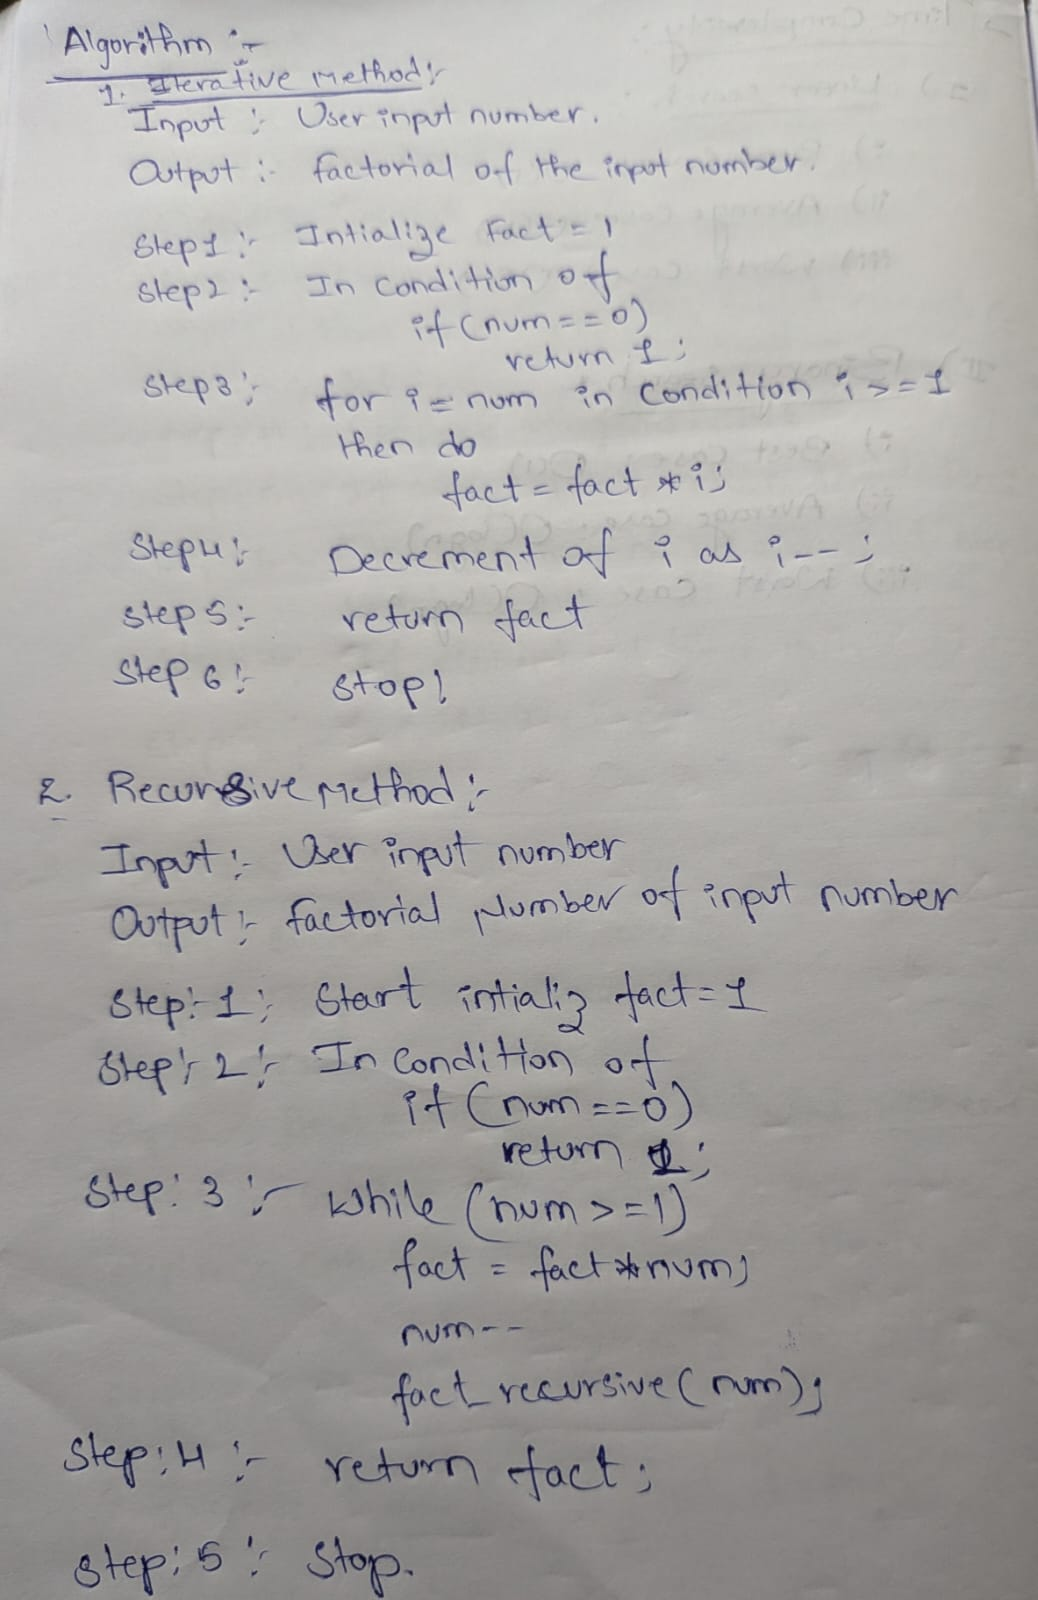 Algorithm :-
1. Iterative Method:-
Input :- User input number.
Output :- factorial of the input number.
Step1 :- Intialize Fact = 1
Step2 :- In condition of
if (num==0)
return 1;
Step3 :- for i = num in condition i >= 1
then do
fact = fact * i;
Step4 :- Decrement of i as i--;
Step5 :- return fact
Step 6 :- Stop!
2. Recursive Method :-
Input :- User input number
Output :- factorial Number of input number
Step:-1 :- Start intializ fact=1
Step:-2 :- In condition of
if (num ==0)
return 1;
Step: 3 :- While (num >=1)
fact = fact * num;
num--
fact_recursive (num);
Step:4 :- return fact;
Step:5 :- Stop.